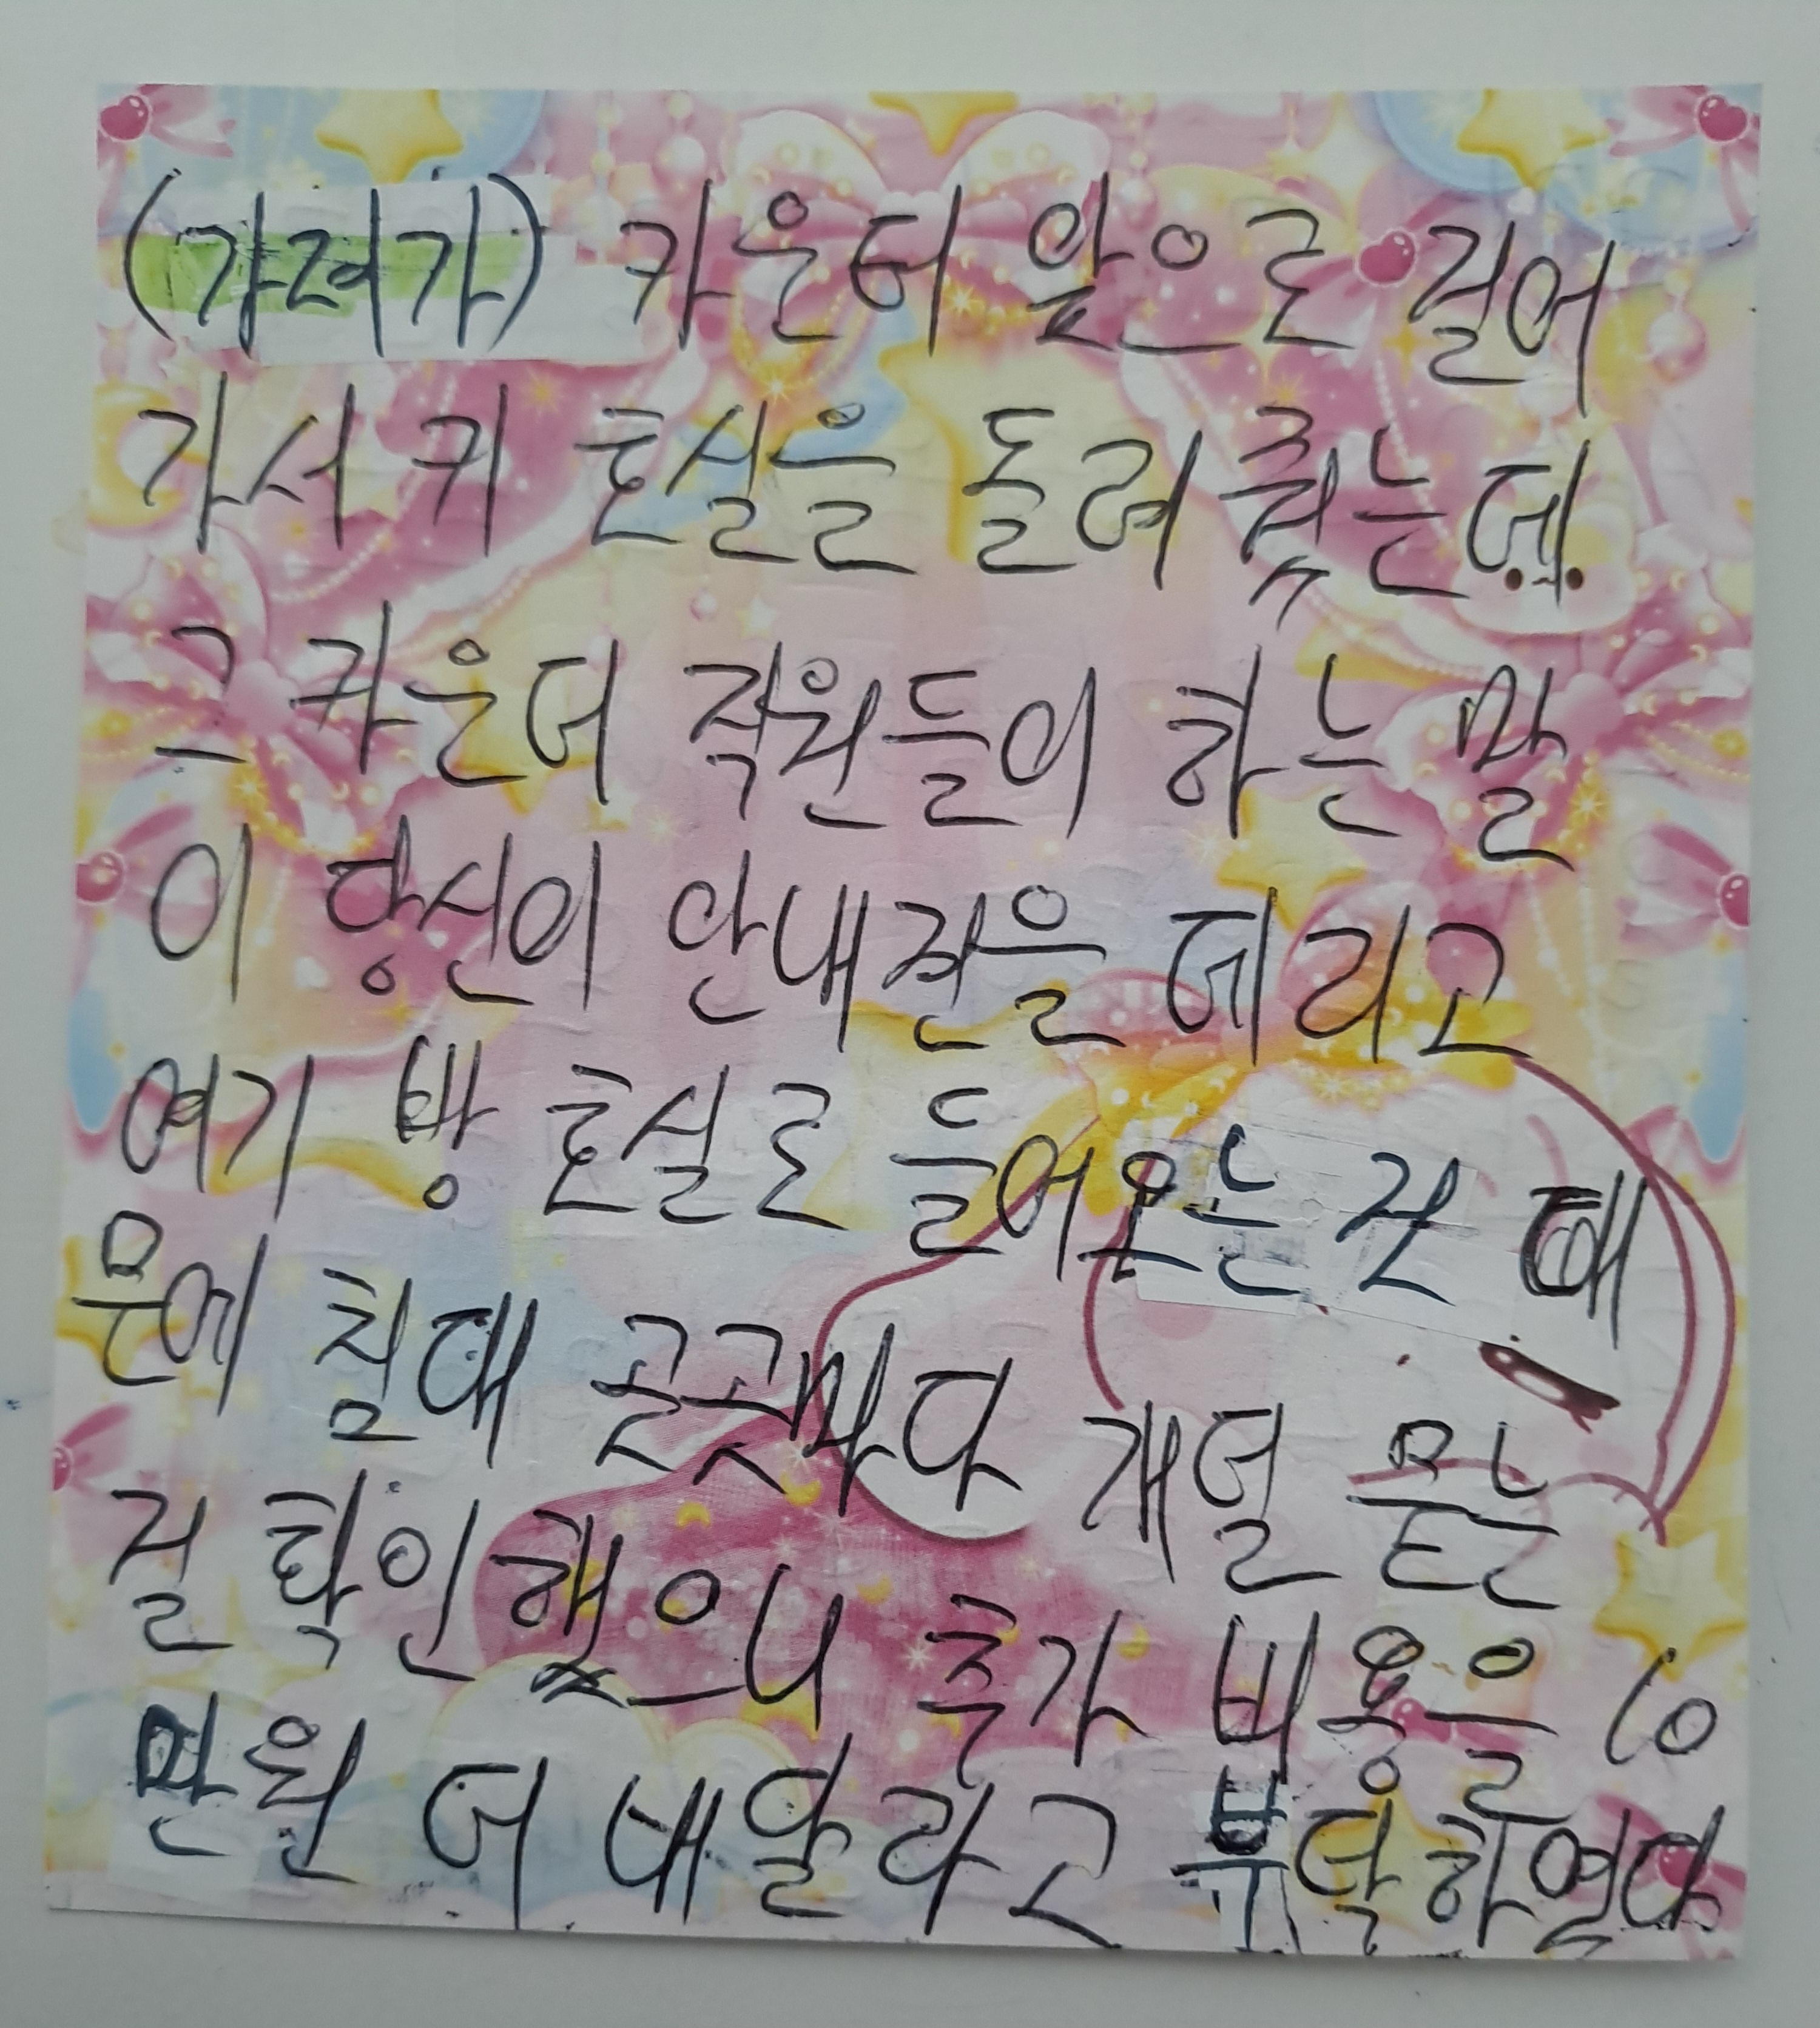 (가려가) 카운터 앞으로 걸어
가서 키 호실을 돌려 줬는데
그 카운터 직원들이 하는 말
이 당신이 안내견을 데리고
여기 방 호실로 들어오는 것 때
문에 침대 곳곳마다 개털 묻은
걸 확인했으니 추가 비용을 10
만원 더 내달라고 부탁하였다